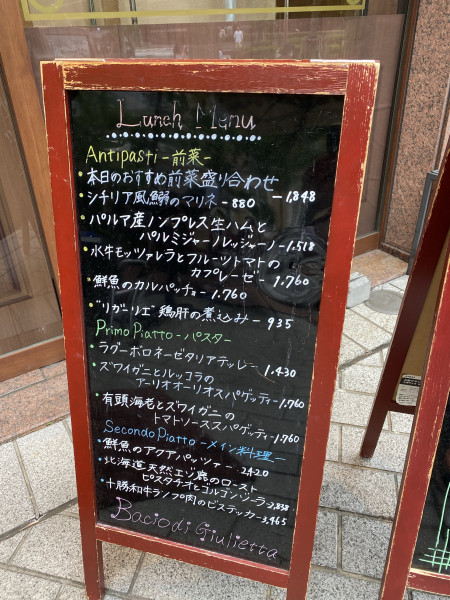 Lunch Menu
Antipasti -前菜-
・本日のおすすめ前菜盛り合わせ
-1,848
・シチリア風鰯のマリネ-880
・パルマ産ノンプレス生ハムと
パルミジャーノレッジャーノ-1.518
・水牛モッツァレラとフルーツトマトの
カプレーゼ-1.760
・鮮魚のカルパッチョ-1.760
・"リガーリエ"鶏肝の煮込み-935
Primo Piatto-パスタ-
・ラグーボロネーゼタリアテッレー1.430
・ズワイガニとルッコラの
アーリオオーリオスパゲッティ-1.760
・有頭海老とズワイガニの
トマトソーススパゲッティ-1.760
Secondo Piatto-メイン料理-
・鮮魚のアクアパッツァー2420
・北海道天然エゾ鹿のロースト
ピスタチオとゴルゴンゾーラ-2,838
・十勝和牛ランプ肉のビステッカー3,465
Bacio di Giulietta